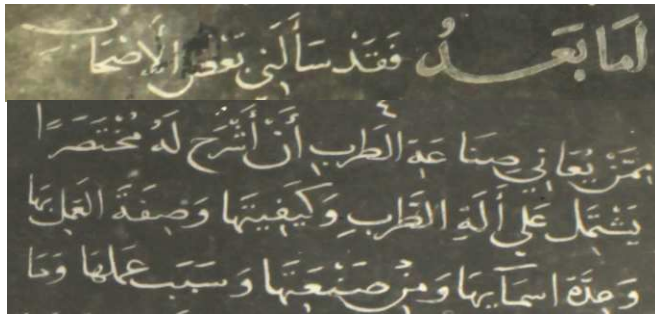 امَا بَعْدُ فَقَدْ سَأَلَنِي بَعْضُ الأَصْحَابِ
مِمَّنْ يُعَانِي صِنَاعَةِ الطَرَبِ أَنْ أَشْرَحَ لَهُ مُخْتَصَرًا
يَشْتَمِل عَلَي أَلَةِ الطَّرَبِ وَكَيْفِيتهَا وَصِفَةَ العَمَل بهَا
وَعِدَّة اسمَآيهَا وَمِنْ صَنْعَتهَا وَسَبَب عَملهَا وَمَا